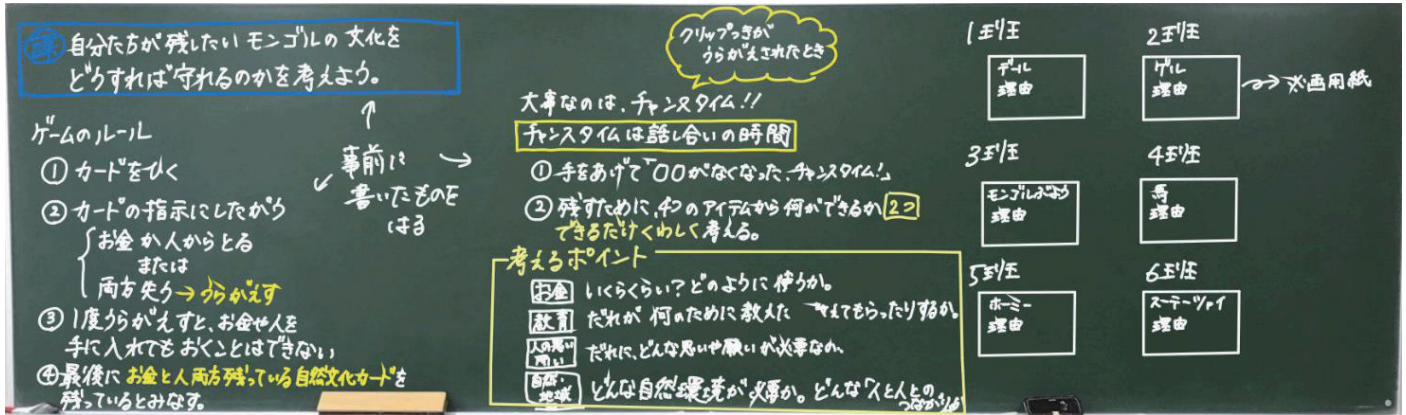 課 自分たちが残したいモンゴルの文化を
どうすれば守れるのかを考えよう。
ゲームのルール
① カードをひく
② カードの指示にしたがう
お金か人からとる
または
両方失う→うらがえす
③ 1度うらがえすと、お金や人を
手に入れてもおくことはできない
④最後にお金と人両方残っている自然文化カードを
残っているとみなす。
事前に
書いたものを
はる
クリップつきが
うらがえされたとき
大事なのは、チャンスタイム!!
チャンスタイムは話し合いの時間
① 手をあげて「〇〇がなくなった、チャンスタイム!」
② 残すために、4つのアイテムから何ができるか2つ
できるだけくわしく考える。
考えるポイント
お金 いくらくらい?どのように使うか。
教育 だれが何のために教えた えてもらったりするか。
人の思い 願い だれに、どんな思いや願いが必要なか。
自然・地域 どんな自然環境が必要か。どんな「人と人との
つながり」が
1班
デール
理由
2班
ゲル
理由
→※画用紙
3班
モンゴルぶよう
理由
4班
馬
理由
5班
ホーミー
理由
6班
スーテーツァイ
理由